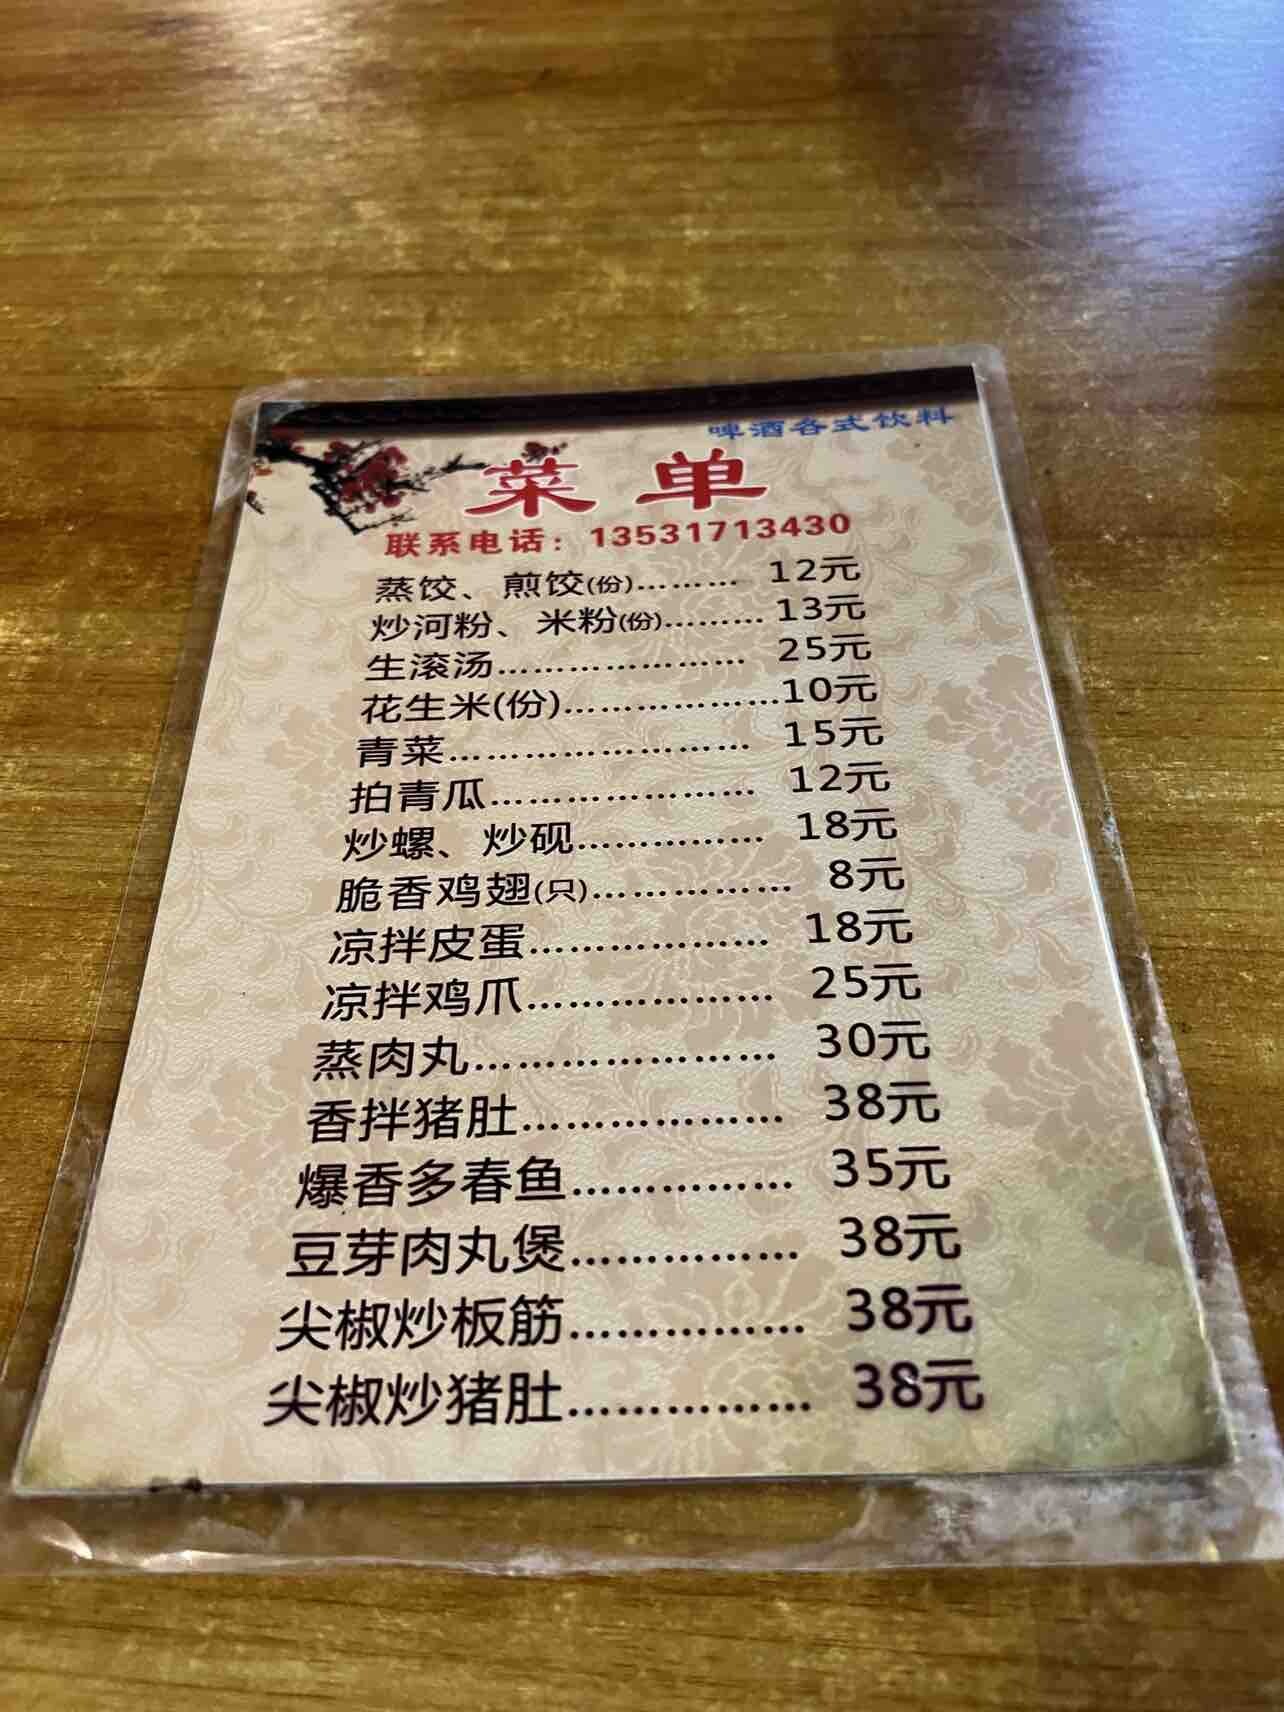 啤酒各式饮料
菜单
联系电话：13531713430
蒸饺、煎饺(份)……… 12元
炒河粉、米粉(份)……… 13元
生滚汤………………… 25元
花生米(份)………………10元
青菜…………………… 15元
拍青瓜………………… 12元
炒螺、炒砚…………… 18元
脆香鸡翅(只)…………… 8元
凉拌皮蛋……………… 18元
凉拌鸡爪……………… 25元
蒸肉丸………………… 30元
香拌猪肚……………… 38元
爆香多春鱼…………… 35元
豆芽肉丸煲…………… 38元
尖椒炒板筋…………… 38元
尖椒炒猪肚…………… 38元